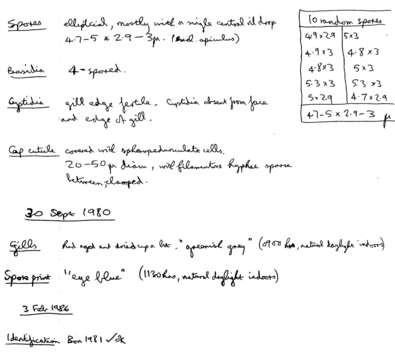 Spores elliptical, mostly with a single central oil drop
4.7-5 x 2.9-3µ. (excl apiculus)
Basidia 4-spored.
Cystidia gill edge fertile. Cystidia absent from face
and edge of gill.
Cap cuticle covered with sphaeropedunculate cells.
20-50µ diam, with filamentous hyphae sparse
between, clamped.
10 random spores
4.9 x 2.9 5 x 3
4.9 x 3 4.8 x 3
4.8 x 3 5 x 3
5.3 x 3 5.3 x 3
5 x 2.9 4.7 x 2.9
4.7-5 x 2.9-3 µ
30 Sept 1980
Gills Had aged and dried up a bit. "greenish grey" (0900 hrs, natural daylight indoors)
Spore print "eye blue" (1130 hrs, natural daylight indoors)
3 Feb 1986
Identification Bon 1981 ✓ ok